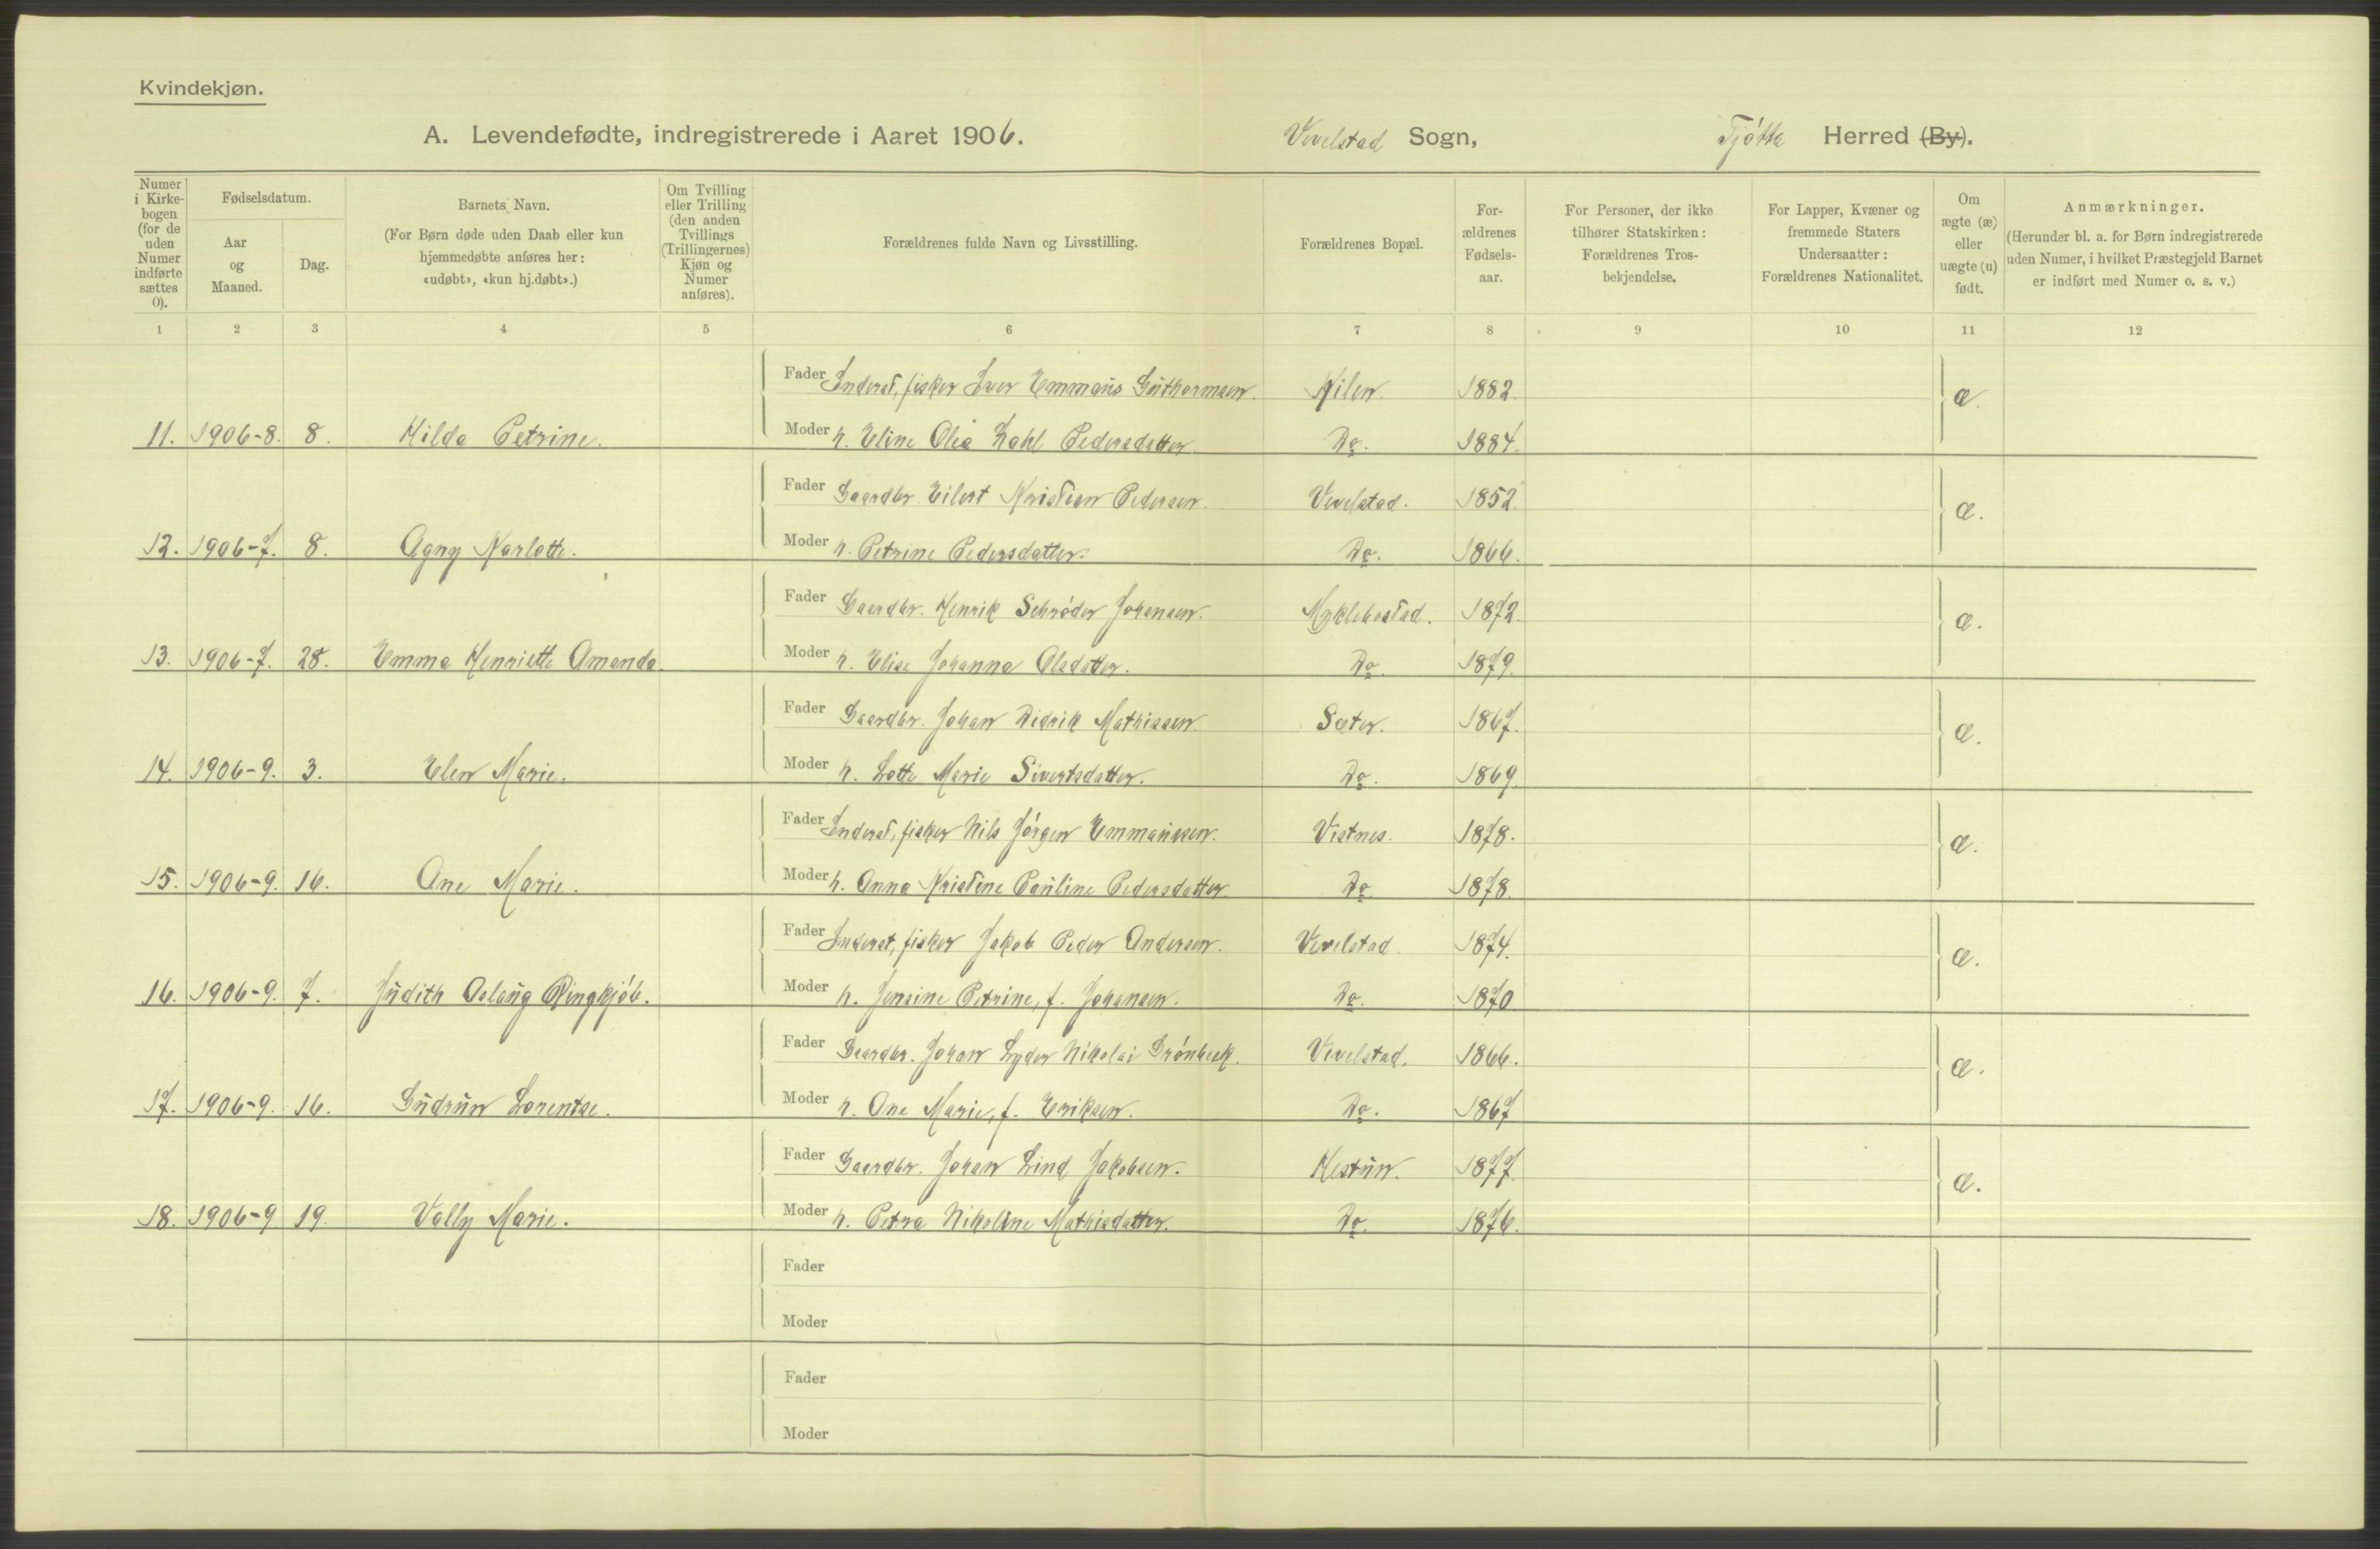 Kvindekjøn.
A. Levendefødte, indregistrerede i Aaret 1906. Vevelstad Sogn, Tjøtta Herred (By).
Numer i Kirkebogen (for de uden Numer indførte sættes 0).
Fødselsdatum.
Aar og Maaned.
Dag.
Barnets Navn.
(For Børn døde uden Daab eller kun hjemmedøbte anføres her: «udøbt», «kun hj.døbt».)
Om Tvilling eller Trilling (den anden Tvillings (Trillingernes) Kjøn og Numer anføres).
Forældrenes fulde Navn og Livsstilling.
Forældrenes Bopæl.
Forældrenes Fødselsaar.
For Personer, der ikke tilhører Statskirken: Forældrenes Trosbekjendelse.
For Lapper, Kvæner og fremmede Staters Undersaatter: Forældrenes Nationalitet.
Om ægte (æ) eller uægte (u) født.
Anmærkninger.
(Herunder bl. a. for Børn indregistrerede uden Numer, i hvilket Præstegjeld Barnet er indført med Numer o. s. v.)
1 2 3 4 5 6 7 8 9 10 11 12
Fader Inderst, fisker Iver Emmaus Guthormsen. Kilen. 1882. æ.
11. 1906-8. 8. Hilda Petrine. Moder h. Eline Olea Zahl Pedersdatter. Do. 1884.
Fader Gaardbr. Eilert Kristian Pedersen. Vevelstad. 1852. æ.
12. 1906-7. 8. Agny Karlotte. Moder h. Petrine Pedersdatter. Do. 1866.
Fader Gaardbr. Henrik Schrøder Johansen. Myklebostad. 1872. æ.
13. 1906-7. 28. Emma Henriette Amanda. Moder h. Elise Johanna Olsdatter. Do. 1879.
Fader Gaardbr. Johan Didrik Mathissen. Sæter. 1867. æ.
14. 1906-9. 3. Elen Marie. Moder h. Lotte Marie Sivertsdatter. Do. 1869.
Fader Inderst, fisker Nils Jørgen Emmaussen. Vistnes. 1878. æ.
15. 1906-9. 16. Ane Marie. Moder h. Anna Kristine Pauline Pedersdatter. Do. 1878.
Fader Inderst, fisker Jakob Peder Andersen. Vevelstad. 1874. æ.
16. 1906-9. 7. Judith Aslaug Ringkjøb. Moder h. Jensine Petrine, f. Johansen. Do. 1870
Fader Gaardbr. Johan Lyder Nikolai Grønbeck. Vevelstad. 1866. æ.
17. 1906-9. 16. Gudrun Lorentse. Moder h. Ane Marie, f. Eriksen. Do. 1867
Fader Gaardbr. Johan Lind Jakobsen. Hestun. 1877. æ.
18. 1906-9 19. Vally Marie. Moder h. Petra Nikoline Mathisdatter. Do. 1876.
Fader
Moder
Fader
Moder